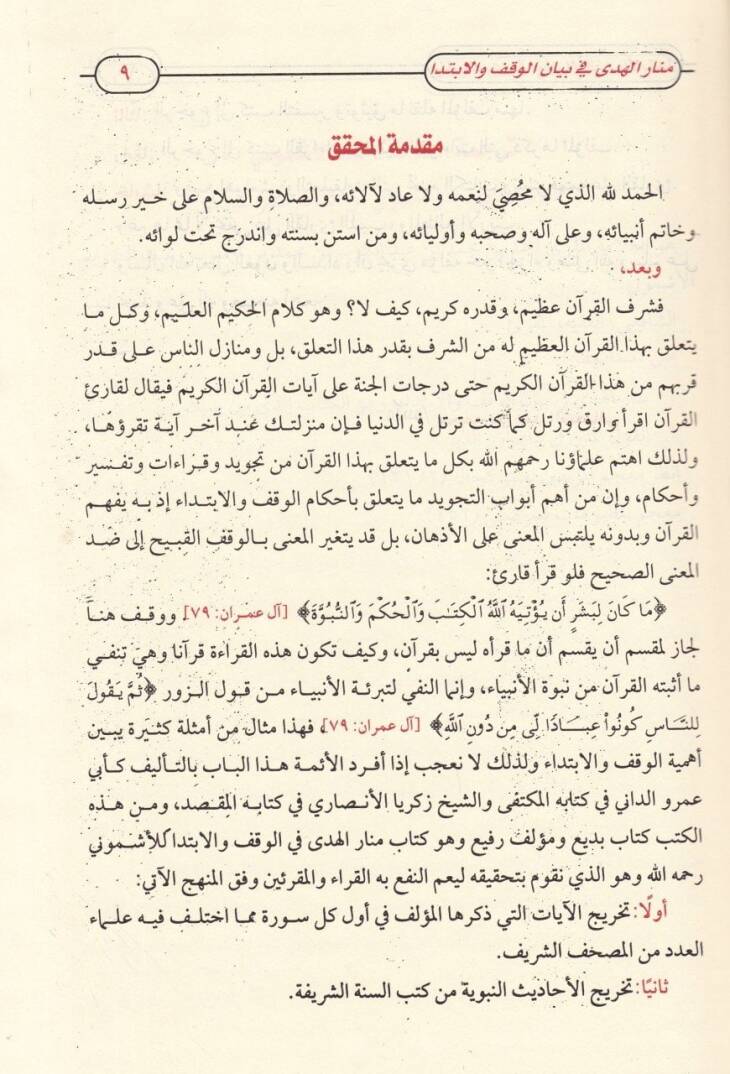 منار الهدى في بيان الوقف والابتدا
٩
مقدمة المحقق
الحمد لله الذي لا مُحْصِيَ لنعمه ولا عاد لآلائه، والصلاة والسلام على خير رسله
وخاتم أنبيائه، وعلى آله وصحبه وأوليائه، ومن استن بسنته واندرج تحت لوائه.
وبعد،
فشرف القرآن عظيم، وقدره كريم، كيف لا؟ وهو كلام الحكيم العليم، وكل ما
يتعلق بهذا القرآن العظيم له من الشرف بقدر هذا التعلق، بل ومنازل الناس على قدر
قربهم من هذا القرآن الكريم حتى درجات الجنة على آيات القرآن الكريم فيقال لقارئ
القرآن اقرأ وارق ورتل كما كنت ترتل في الدنيا فإن منزلتك عند آخر آية تقرؤها،
ولذلك اهتم علماؤنا رحمهم الله بكل ما يتعلق بهذا القرآن من تجويد وقراءات وتفسير
وأحكام، وإن من أهم أبواب التجويد ما يتعلق بأحكام الوقف والابتداء إذ به يفهم
القرآن وبدونه يلتبس المعنى على الأذهان، بل قد يتغير المعنى بالوقف القبيح إلى ضد
المعنى الصحيح فلو قرأ قارئ:
﴿مَا كَانَ لِبَشَرٍ أَن يُؤْتِيَهُ اللَّهُ الْكِتَٰبَ وَالْحُكْمَ وَالنُّبُوَّةَ﴾ [آل عمران: ٧٩] ووقف هنا
لجاز لمقسم أن يقسم أن ما قرأه ليس بقرآن، وكيف تكون هذه القراءة قرآنا وهي تنفي
ما أثبته القرآن من نبوة الأنبياء، وإنما النفي لتبرئة الأنبياء من قول الزور ﴿ثُمَّ يَقُولَ
لِلنَّاسِ كُونُوا عِبَادًا لِّي مِن دُونِ اللَّهِ﴾ [آل عمران: ٧٩]، فهذا مثال من أمثلة كثيرة يبين
أهمية الوقف والابتداء ولذلك لا نعجب إذا أفرد الأئمة هذا الباب بالتأليف كأبي
عمرو الداني في كتابه المكتفى والشيخ زكريا الأنصاري في كتابه المقصد، ومن هذه
الكتب كتاب بديع ومؤلف رفيع وهو كتاب منار الهدى في الوقف والابتدا للأشموني
رحمه الله وهو الذي نقوم بتحقيقه ليعم النفع به القراء والمقرئين وفق المنهج الآتي:
أولًا: تخريج الآيات التي ذكرها المؤلف في أول كل سورة مما اختلف فيه علماء
العدد من المصحف الشريف.
ثانيًا: تخريج الأحاديث النبوية من كتب السنة الشريفة.